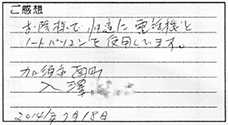 ご感想
お陰様で快適に電話機と
ノートパソコンを使用しています。
加須市南町
入澤
2014年7月18日